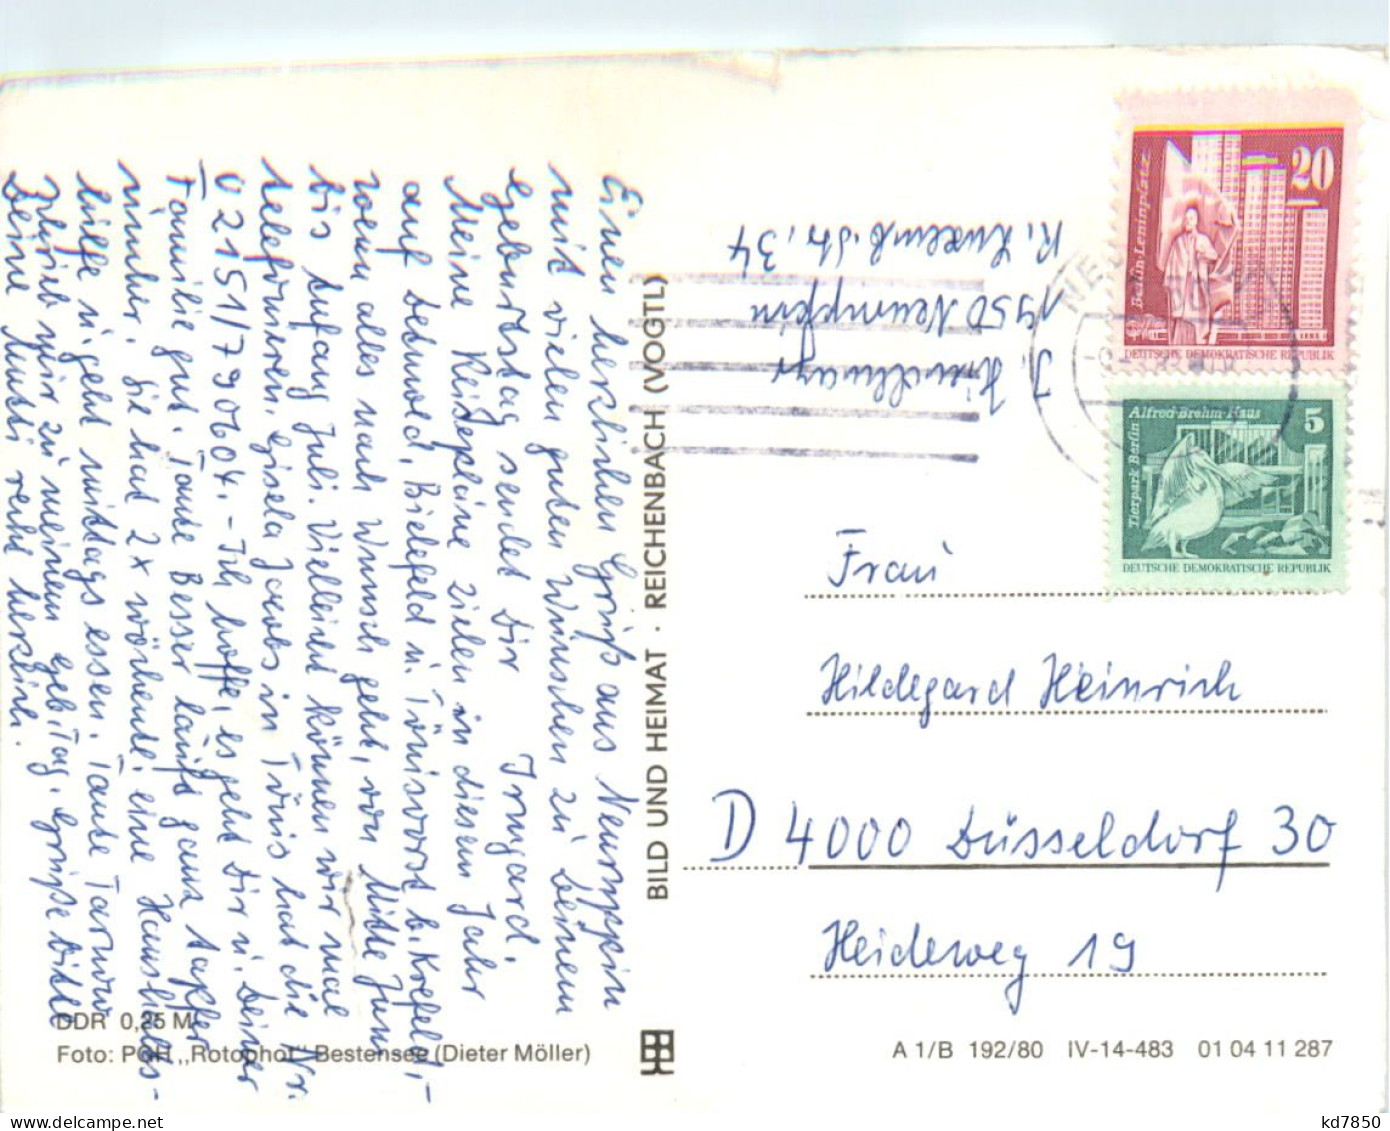 Einen herzlichen Gruß aus Neuruppin
mit vielen guten Wünschen zu Deinem
Geburtstag sendet Dir Irmgard.
Meine Reisepläne zielen in diesem Jahr
auf Detmold, Bielefeld u. Tönisvorst b. Krefeld,-
wenn alles nach Wunsch geht, von Mitte Juni
bis Anfang Juli. Vielleicht können wir mal
telefonieren. Gisela Jacobs in Tönis hat die Nr.
02151/790604. - Ich hoffe, es geht Dir u. Deiner
Familie gut. Tante Besser läuft ganz tapfer
umher. Sie hat 2x wöchentl. eine Haushalts-
hilfe u. geht mittags essen. Tante
schrieb mir zu meinem Geb. Tag. Grüße bitte
Deine Mutti recht herzlich.
BILD UND HEIMAT · REICHENBACH (VOGTL)
DDR 0,25 M
Foto: PGH „Rotophot" Bestensee (Dieter Möller)
J.
1950 Neuruppin
R. Luxemb. Str. 34
Berlin-Leninplatz
20
DEUTSCHE DEMOKRATISCHE REPUBLIK
Tierpark Berlin
Alfred-Brehm-Haus
5
DEUTSCHE DEMOKRATISCHE REPUBLIK
Frau
Hildegard Heinrich
D 4000 Düsseldorf 30
Heideweg 19
A 1/B 192/80 IV-14-483 01 04 11 287
kd7850